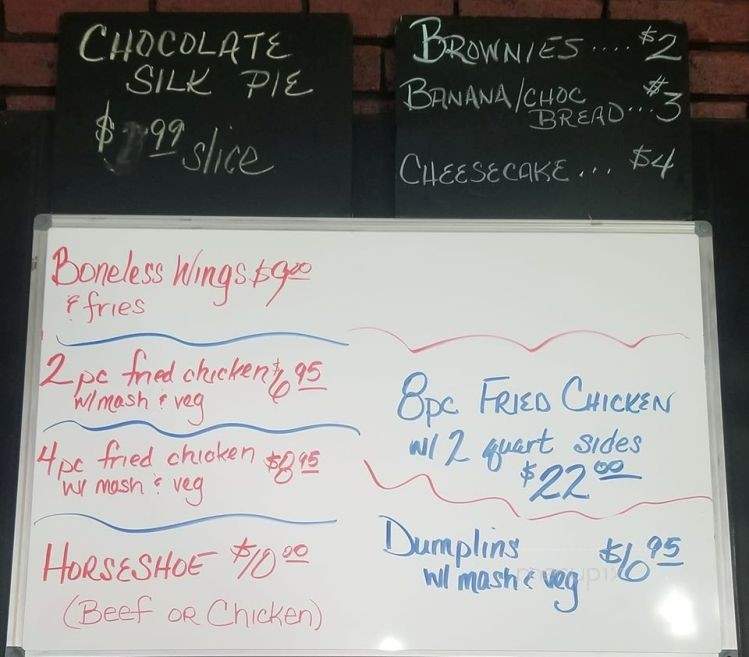 CHOCOLATE
SILK PIE
99 slice
BROWNIES .... $2
BANANA/CHOC
BREAD... $3
CHEESECAKE... $4
Boneless Wings $9.00
& fries
2 pc fried chicken $6.95
w/ mash & veg
4 pc fried chicken $8.95
w/ mash & veg
HORSESHOE $10.00
(Beef OR Chicken)
8pc FRIED CHICKEN
w/ 2 quart sides
$22.00
Dumplins $6.95
w/ mash & veg